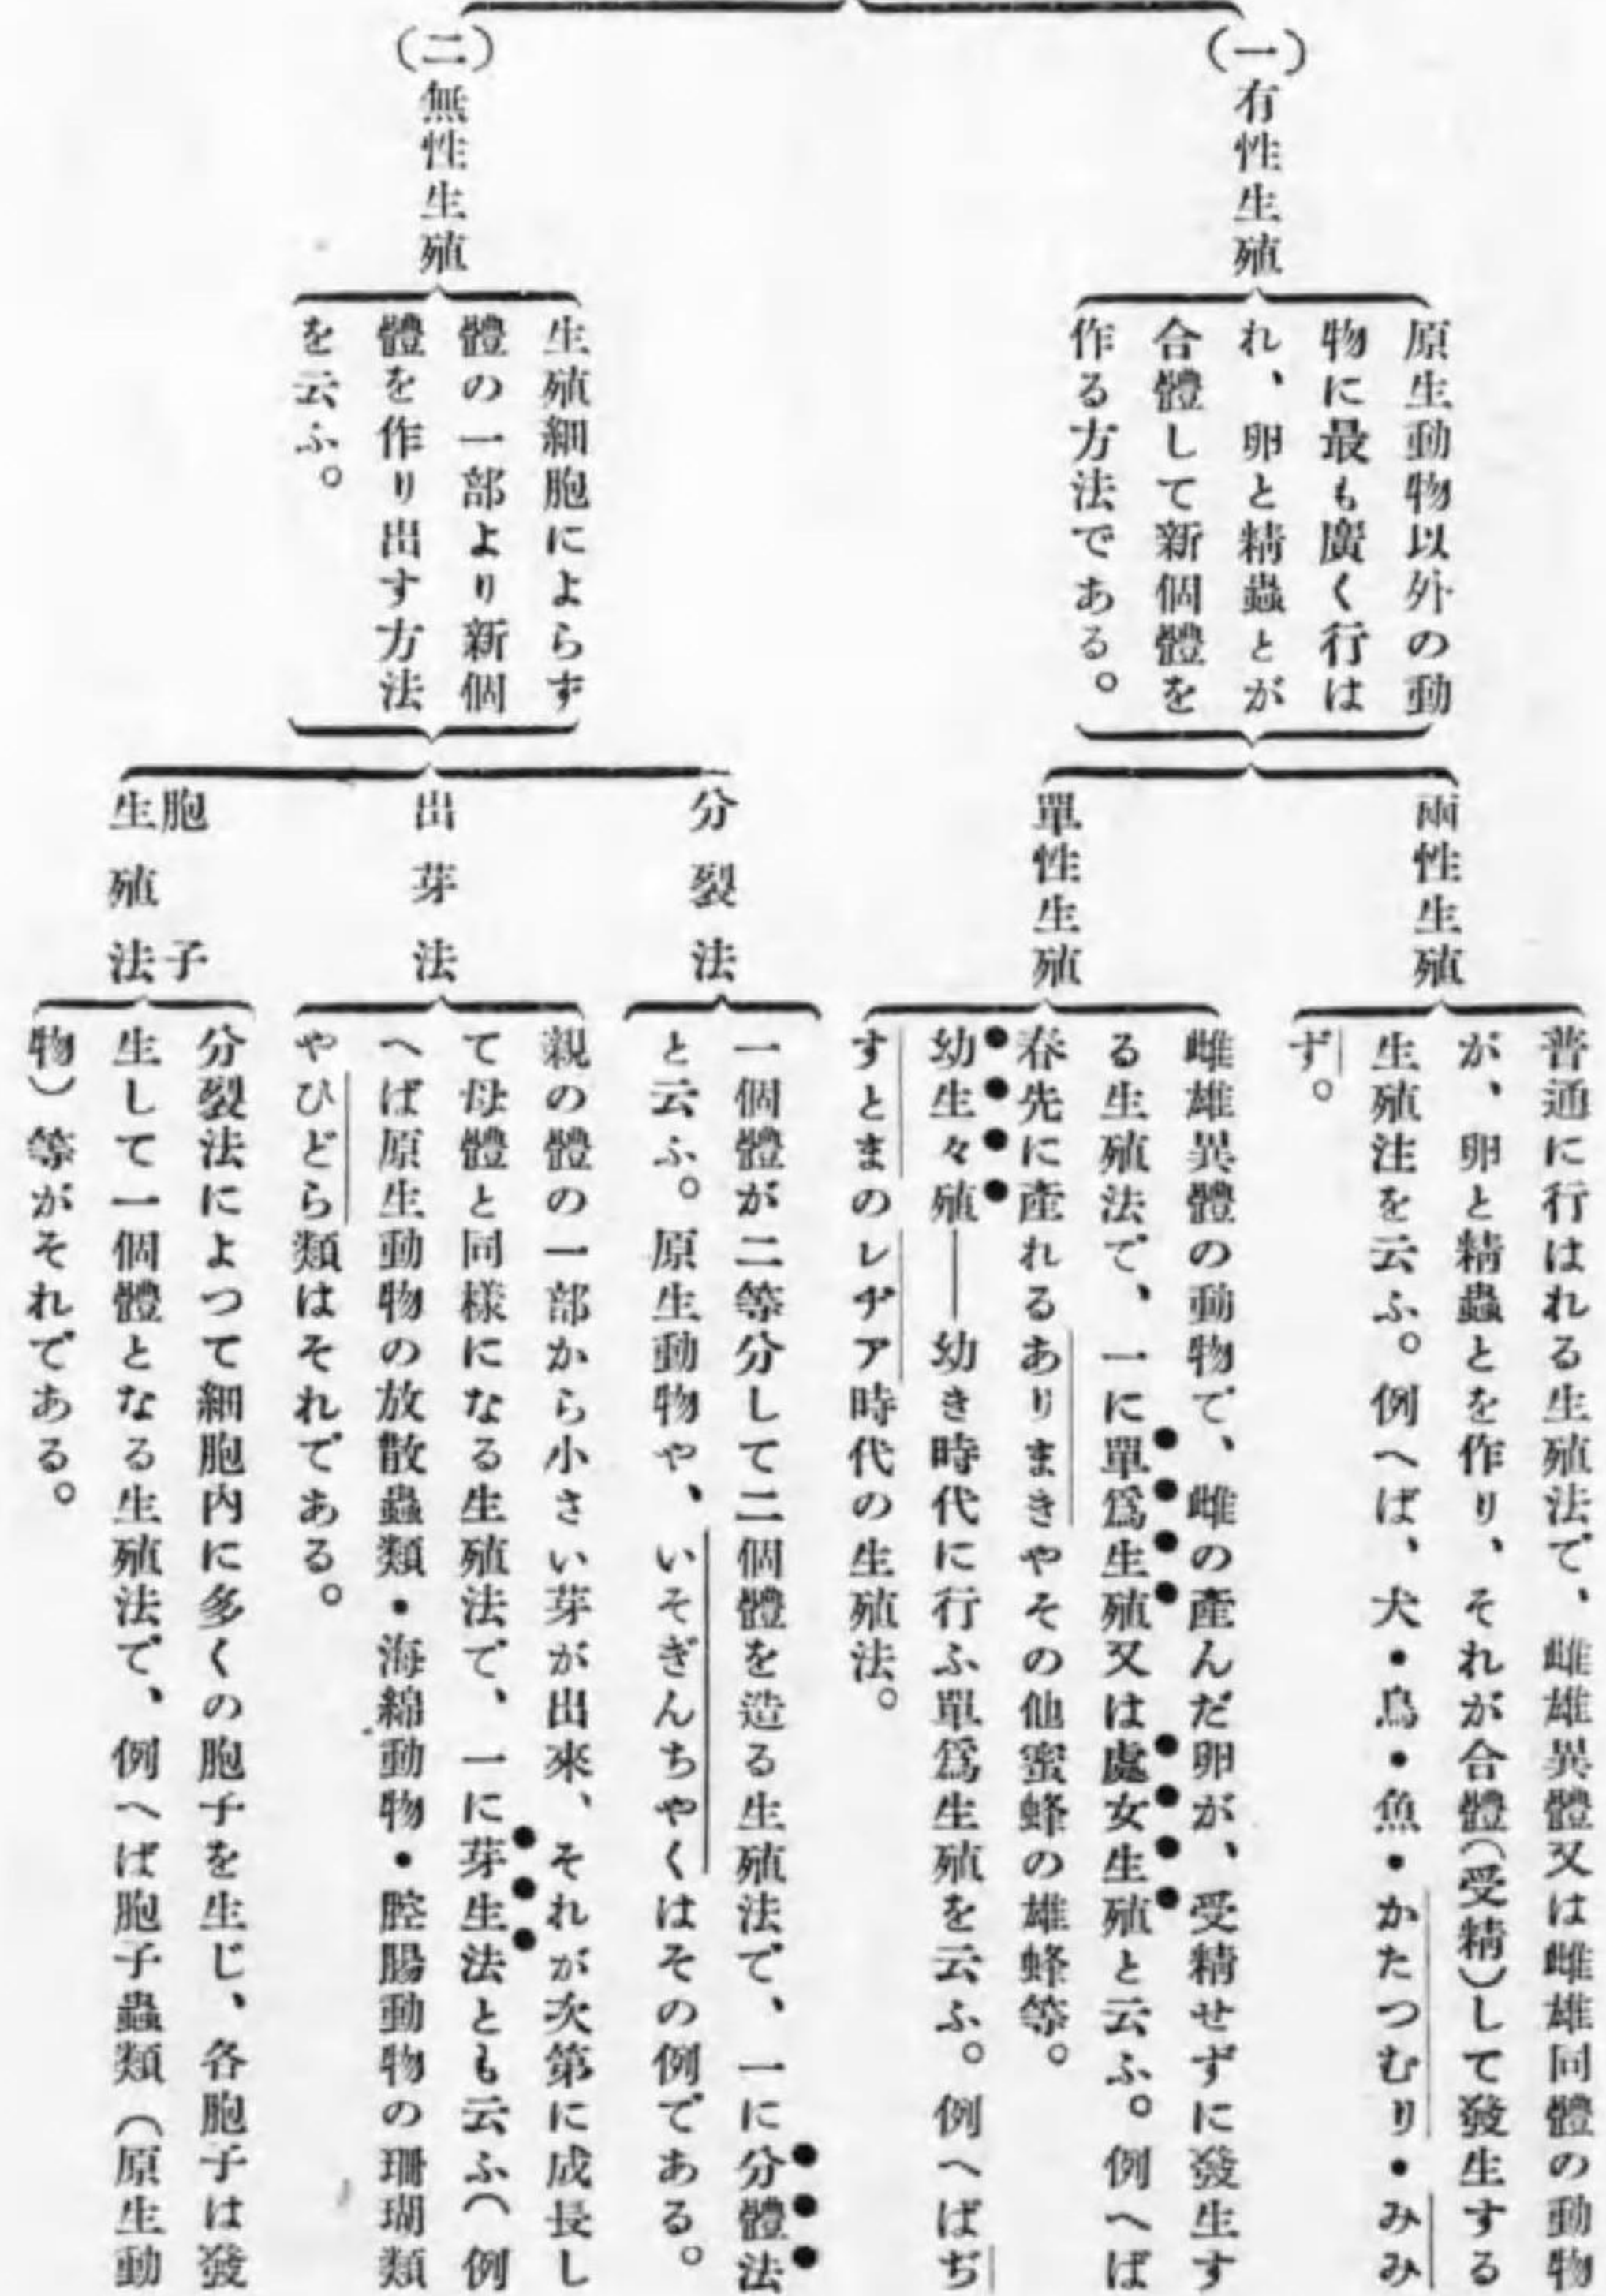 (一)有性生殖
原生動物以外の動
物に最も廣く行は
れ、卵と精蟲とが
合體して新個體を
作る方法である。
兩性生殖
普通に行はれる生殖法で、雌雄異體又は雌雄同體の動物
が、卵と精蟲とを作り、それが合體(受精)して發生する
生殖注を云ふ。例へば、犬・鳥・魚・かたつむり・みみ
ず。
單性生殖
雌雄異體の動物で、雌の產んだ卵が、受精せずに發生す
る生殖法で、一に單爲生殖又は處女生殖と云ふ。例へば
春先に產れるありまきやその他蜜蜂の雄蜂等。
幼生々殖――幼き時代に行ふ單爲生殖を云ふ。例へばぢ
すとまのレヂア時代の生殖法。
(二)無性生殖
生殖細胞によらず
體の一部より新個
體を作り出す方法
を云ふ。
分裂法
一個體が二等分して二個體を造る生殖法で、一に分體法
と云ふ。原生動物や、いそぎんちやくはその例である。
出芽法
親の體の一部から小さい芽が出來、それが次第に成長し
て母體と同樣になる生殖法で、一に芽生法とも云ふ(例
へば原生動物の放散蟲類・海綿動物・腔腸動物の珊瑚類
やひどら類はそれである。
胞子
生殖法
分裂法によつて細胞內に多くの胞子を生じ、各胞子は發
生して一個體となる生殖法で、例へば胞子蟲類(原生動
物)等がそれである。